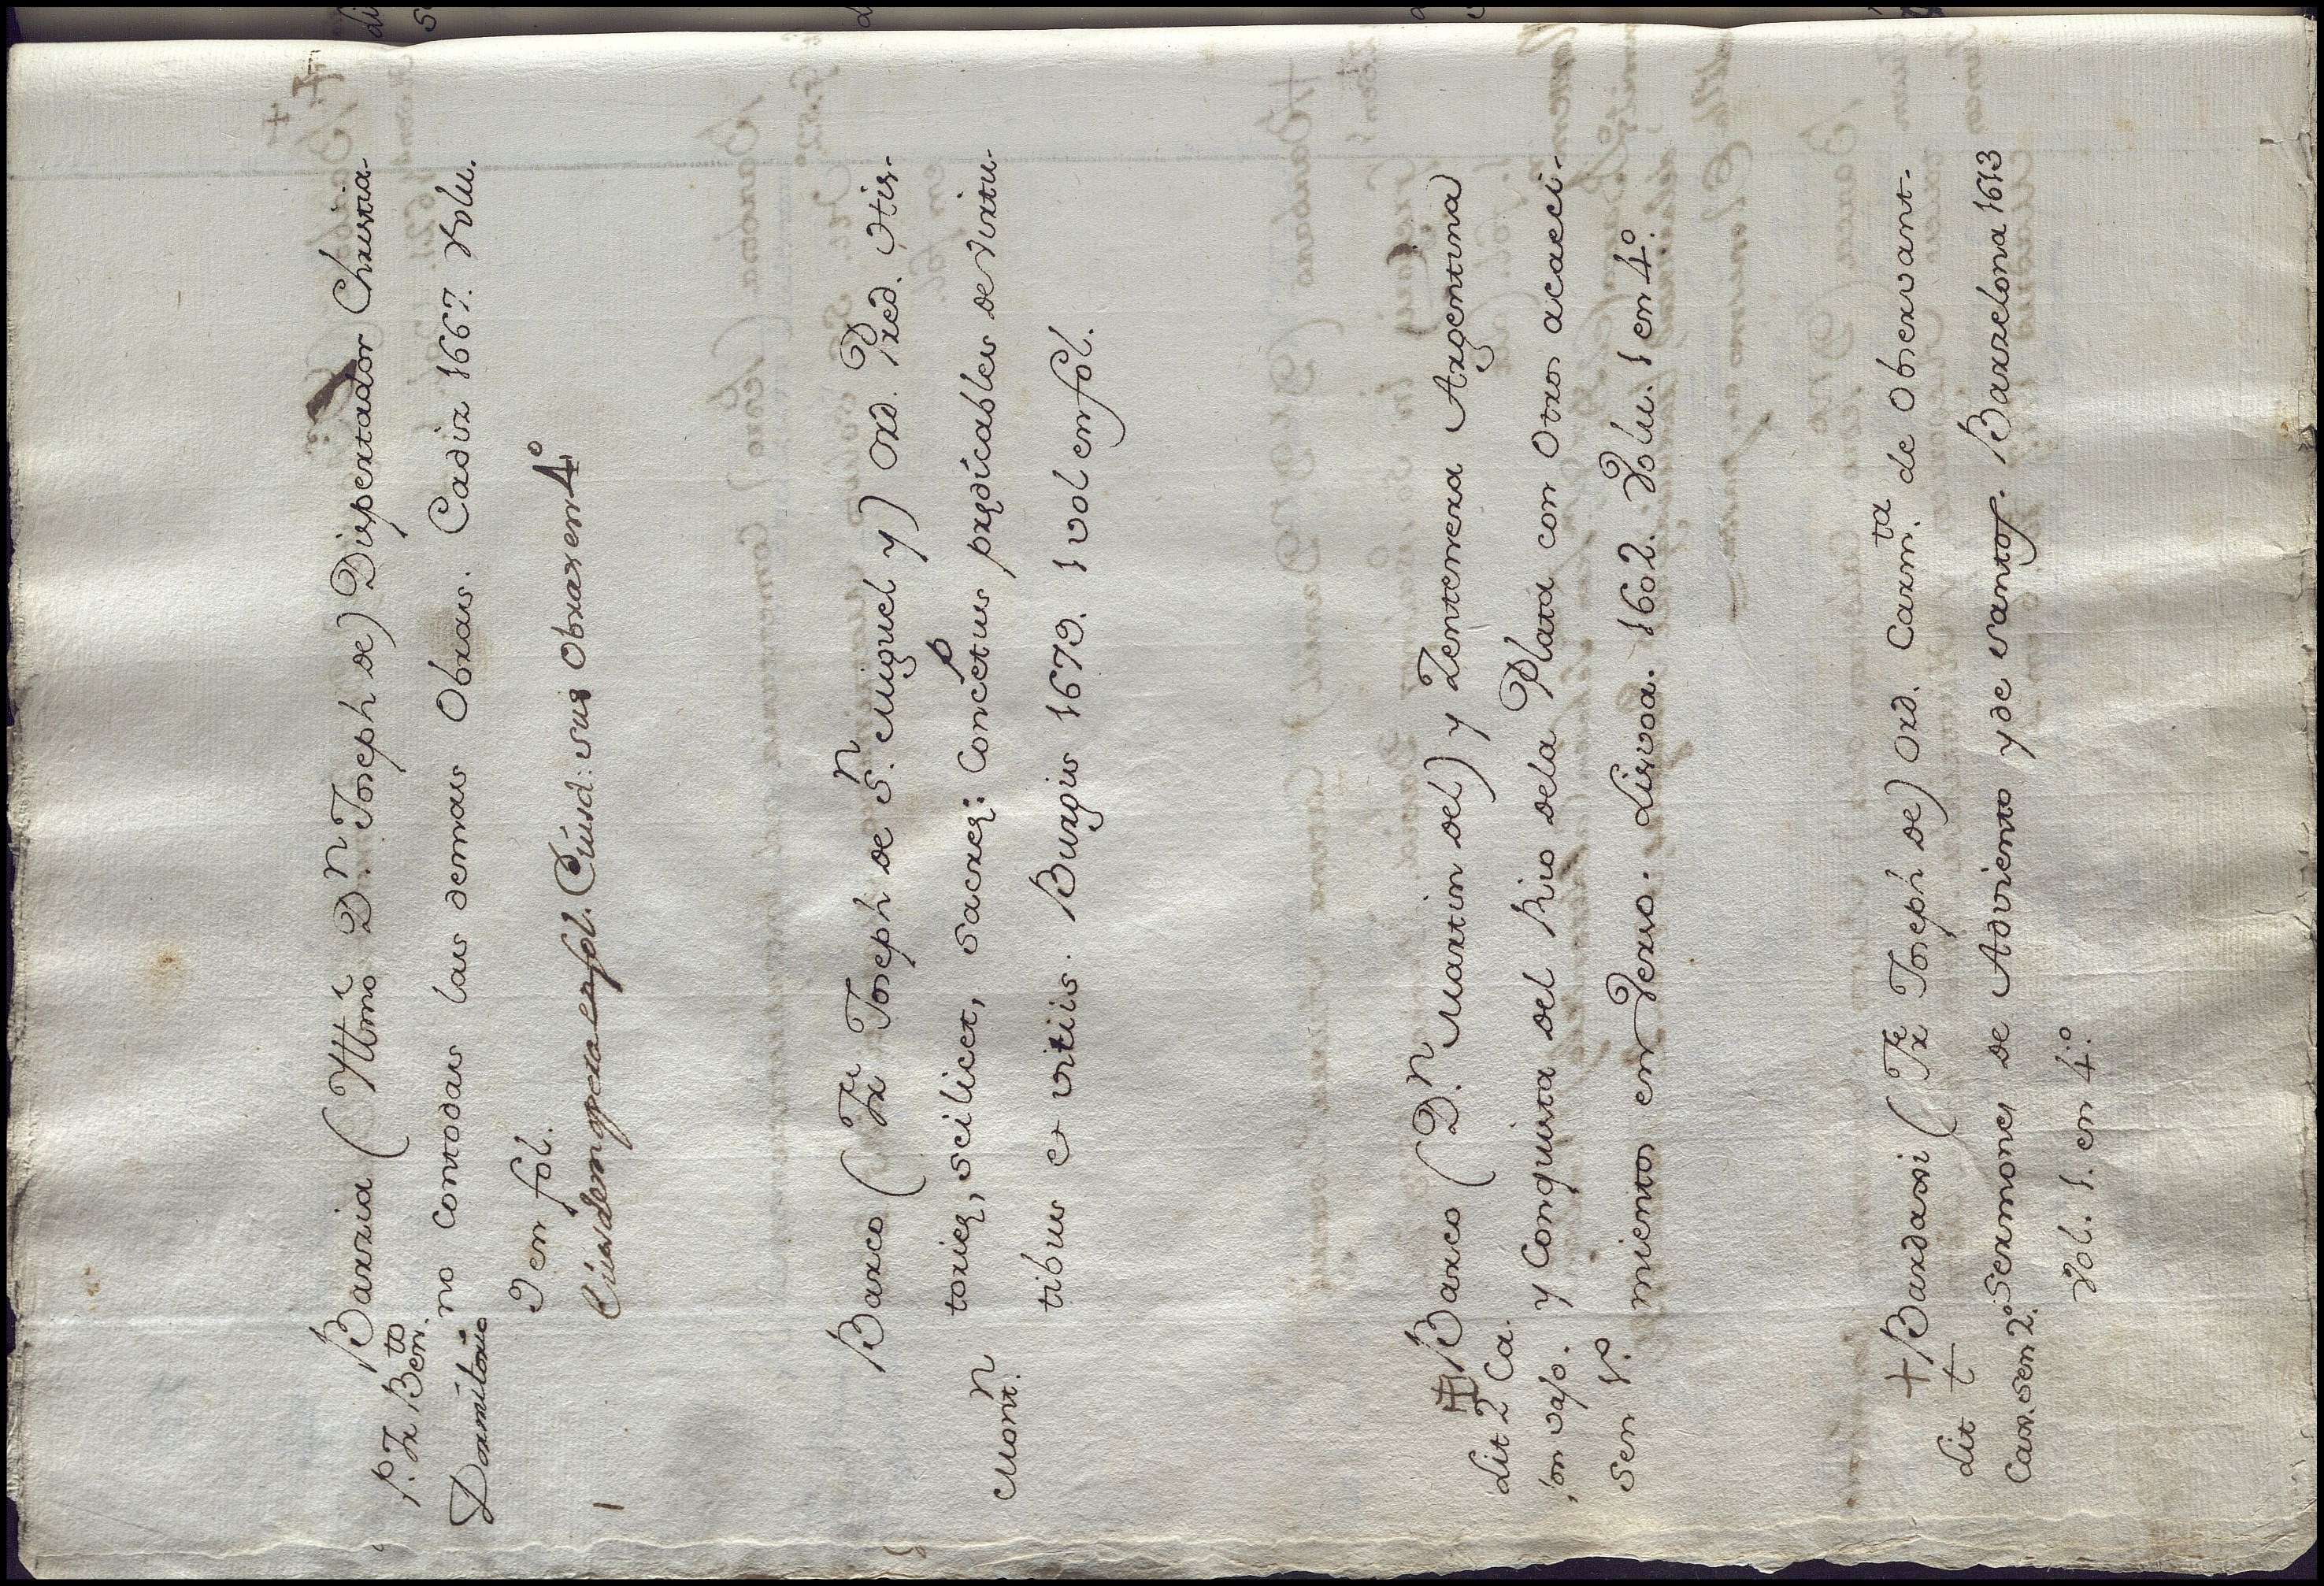 Barzia (Yllmo D.n Joseph de) Dispertador Christia-
P. Fr Ben.to
no contodas las demas Obras. Cadiz 1667. Volu.
Dormitorio
9 en fol.
Eiusdem opera en fol. Eiusd: sus Obras en 4º
Barco (Fr Joseph de S.n Miguel y) Ord. Pred. His-
toriæ, scilicet, sacræ: Concetus prædicables de Virtu-
Mont.n
tibus et vitiis. Burgis 1679. 1 vol en fol.
Barco (D.n Martin del) y Zentenera Argentina
Lit 2 Ca.
y Conquista del Rio dela Plata con Otros acaeci-
jon vajo.
mientos en Verso. Lisboa. 1602. Volu. 1 en 4º.
Sen 1º.
+ Bardaxi (Fr Joseph de) Ord. Carm.ta de Observant.
Lit t
Sermones de Adviento y de santos. Barzelona 1613
Cax. sen 2º
Vol. 1. en 4.º